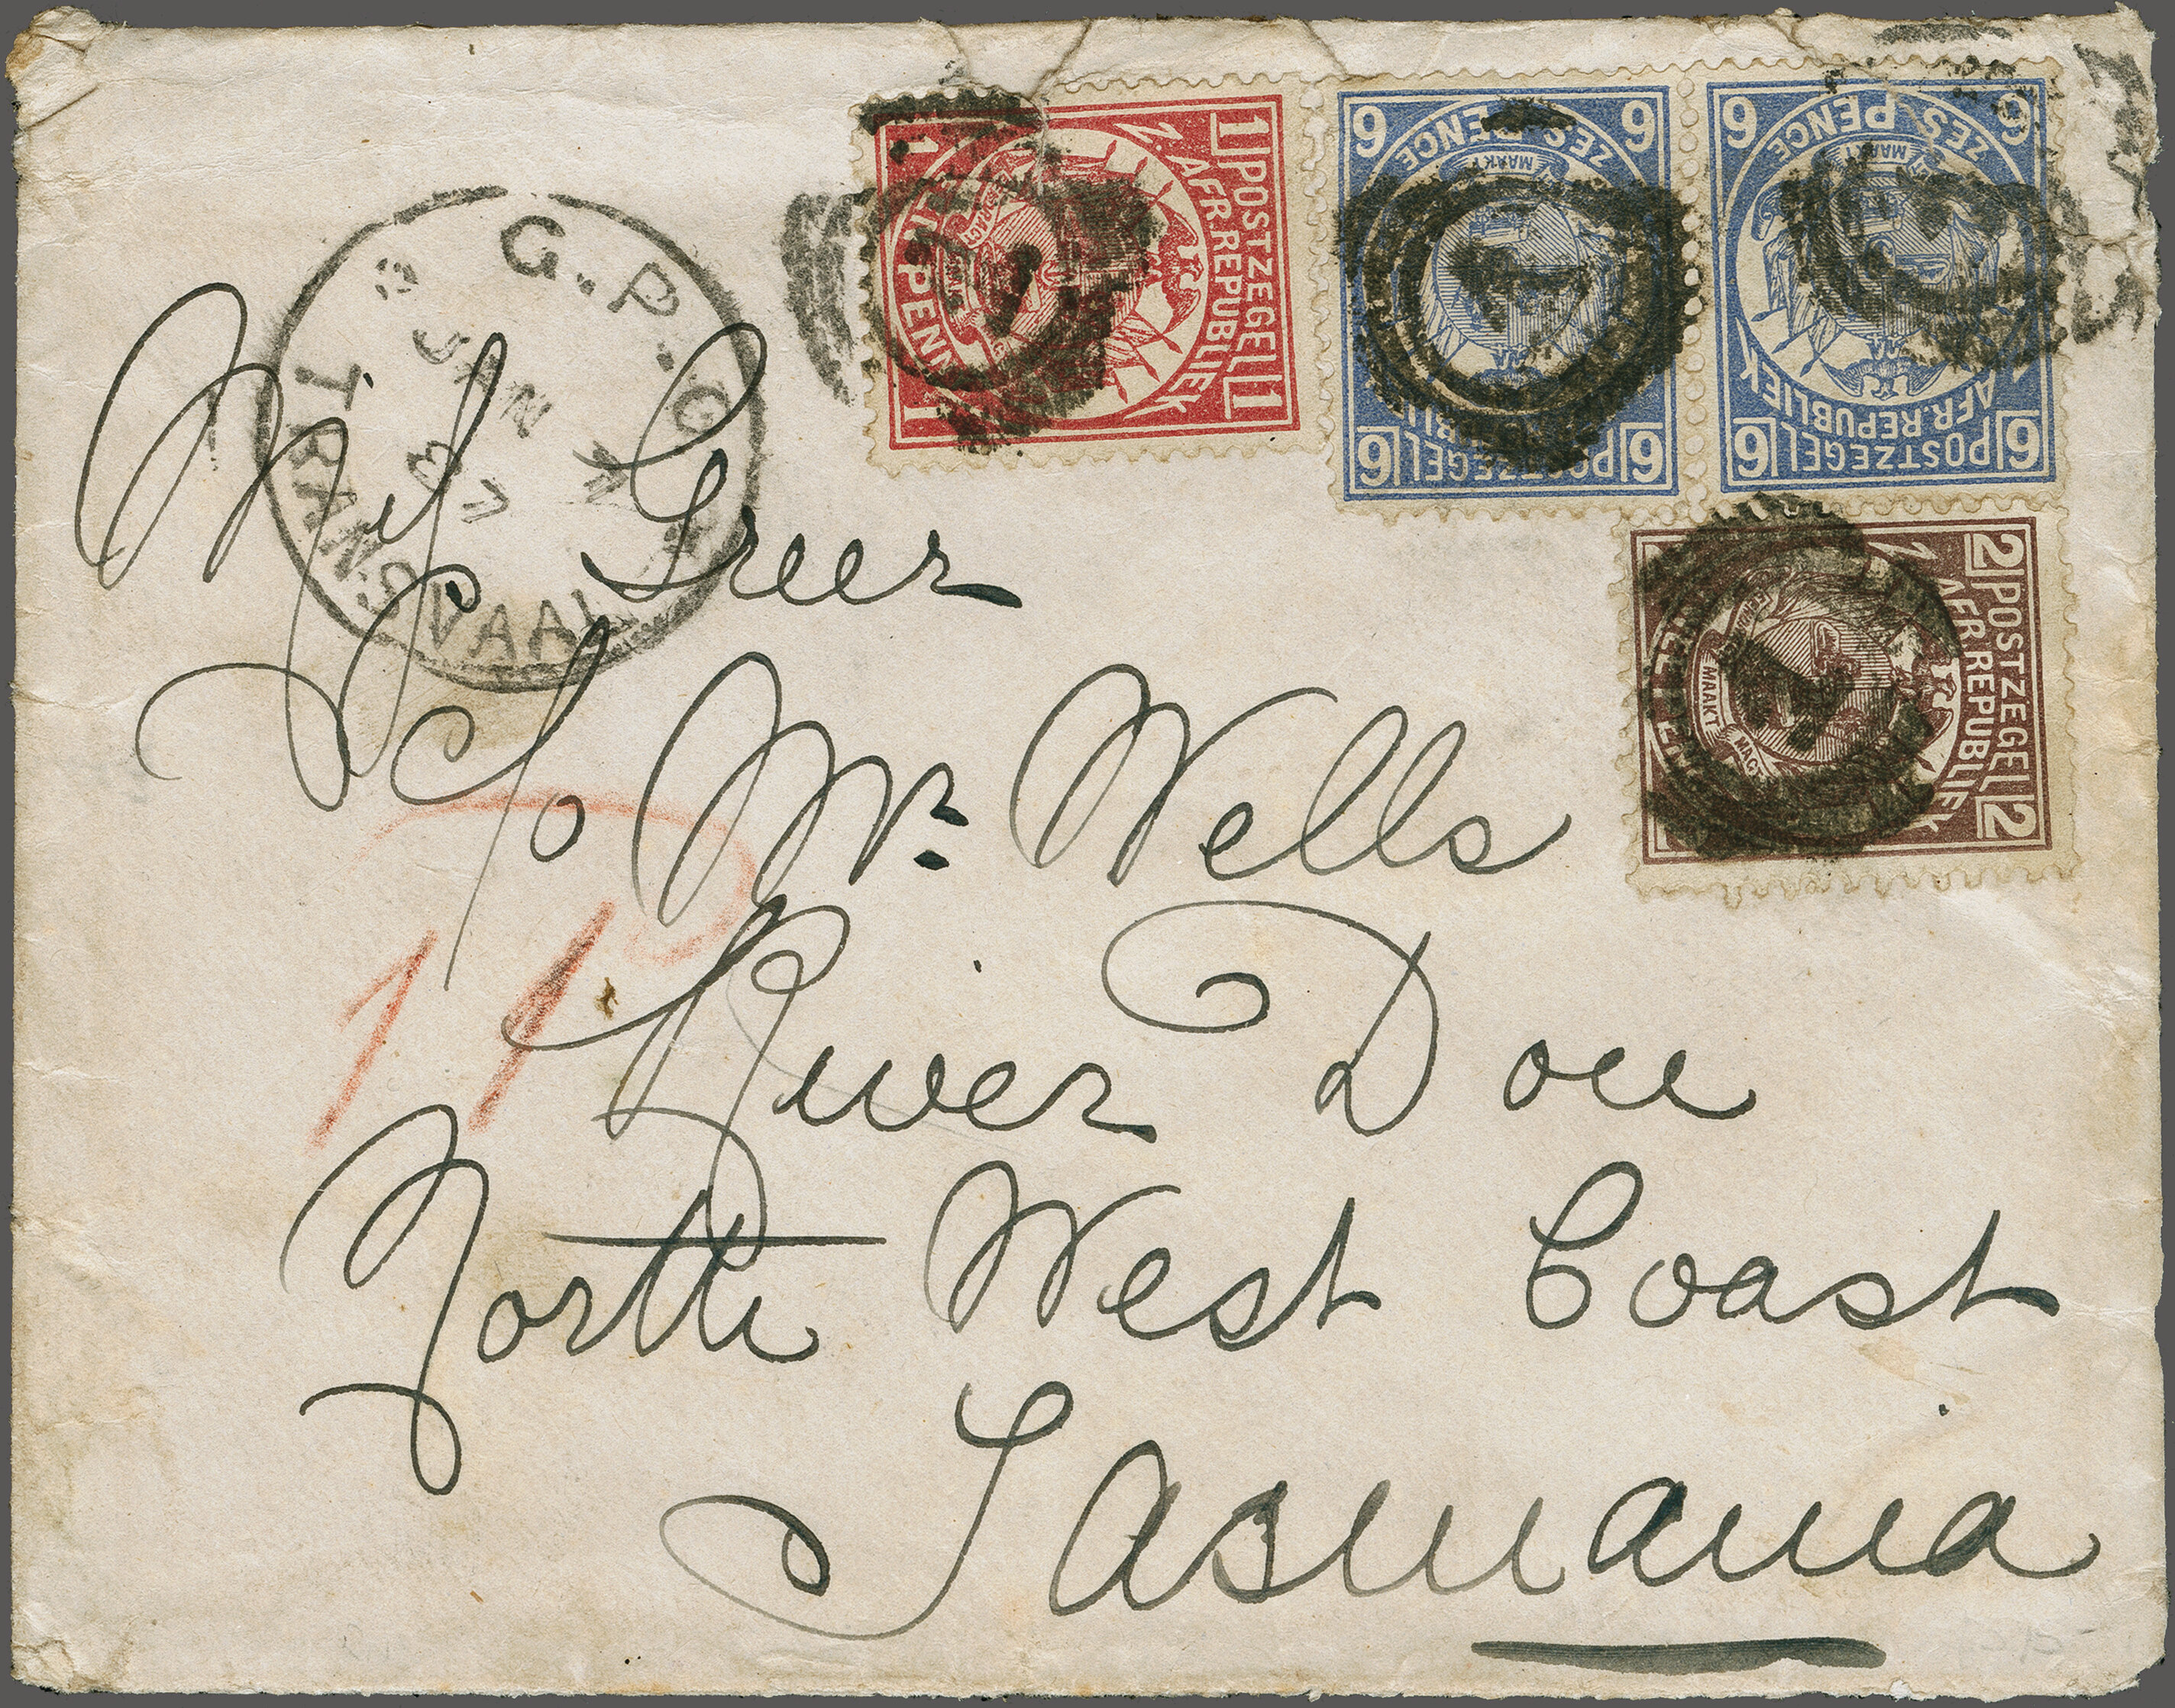 G.P.O
JAN
TRANSVAAL
1 POSTZEGEL 1
Z. AFR. REPUBLIEK
1 PENNY 1
6 ZES PENCE 6
MAKT
6 POSTZEGEL 6
6 ZES PENCE 6
MAKT
AFR. REPUBLIEK
6 POSTZEGEL 6
2 POSTZEGEL 2
Z. AFR. REPUBLIEK
MAAKT MAGT
1
1
Miss Greer
c/o Mr. Wells
River Don
North West Coast
Tasmania
11